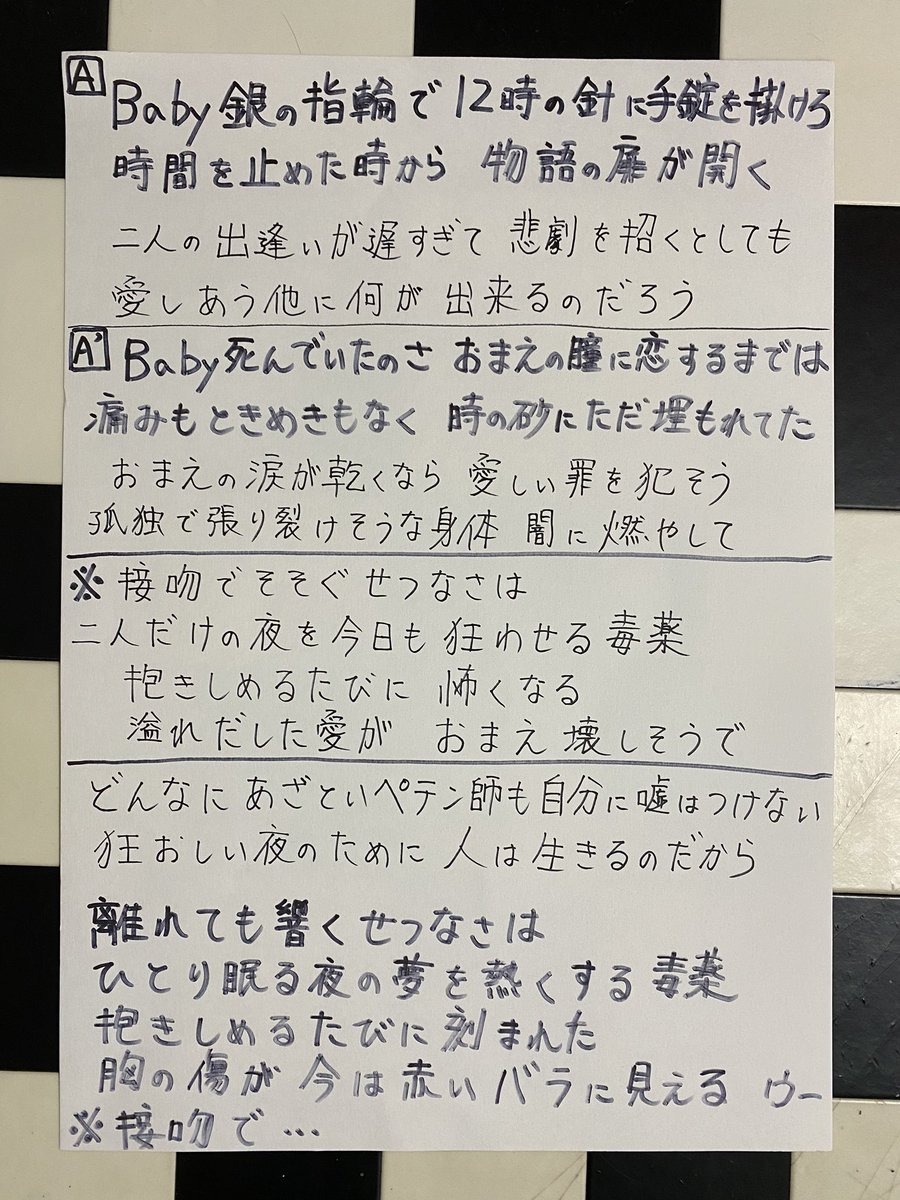 A
Baby銀の指輪で12時の針に手錠を掛けろ
時間を止めた時から 物語の扉が開く
二人の出逢いが遅すぎて 悲劇を招くとしても
愛しあう他に何が出来るのだろう
A'
Baby死んでいたのさ おまえの瞳に恋するまでは
痛みもときめきもなく 時の砂にただ埋もれてた
おまえの涙が乾くなら 愛しい罪を犯そう
孤独で張り裂けそうな身体 闇に燃やして
※接吻でそそぐせつなさは
二人だけの夜を今日も狂わせる毒薬
抱きしめるたびに 怖くなる
溢れだした愛が おまえ壊しそうで
どんなにあざといペテン師も自分に嘘はつけない
狂おしい夜のために 人は生きるのだから
離れても響くせつなさは
ひとり眠る夜の夢を熱くする毒薬
抱きしめるたびに刻まれた
胸の傷が今は赤いバラに見える ウー
※接吻で…